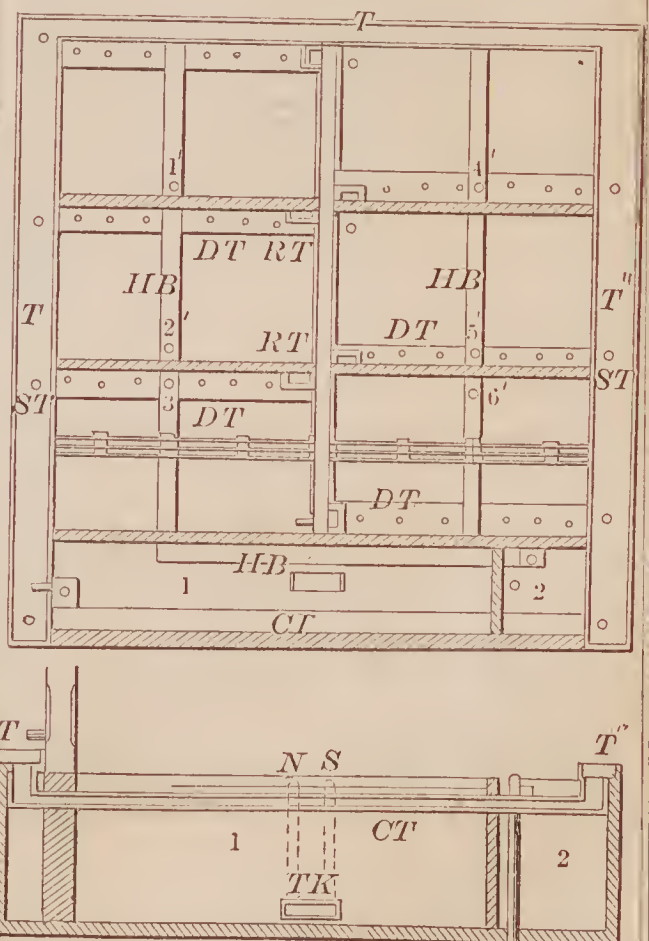 T
1'
4'
DT RT
HB
HB
T
T"
2'
RT
DT
5'
ST
3
6'
ST
DT
DT
HB
1
2
CT
T
N S
T"
1
CT
2
TK